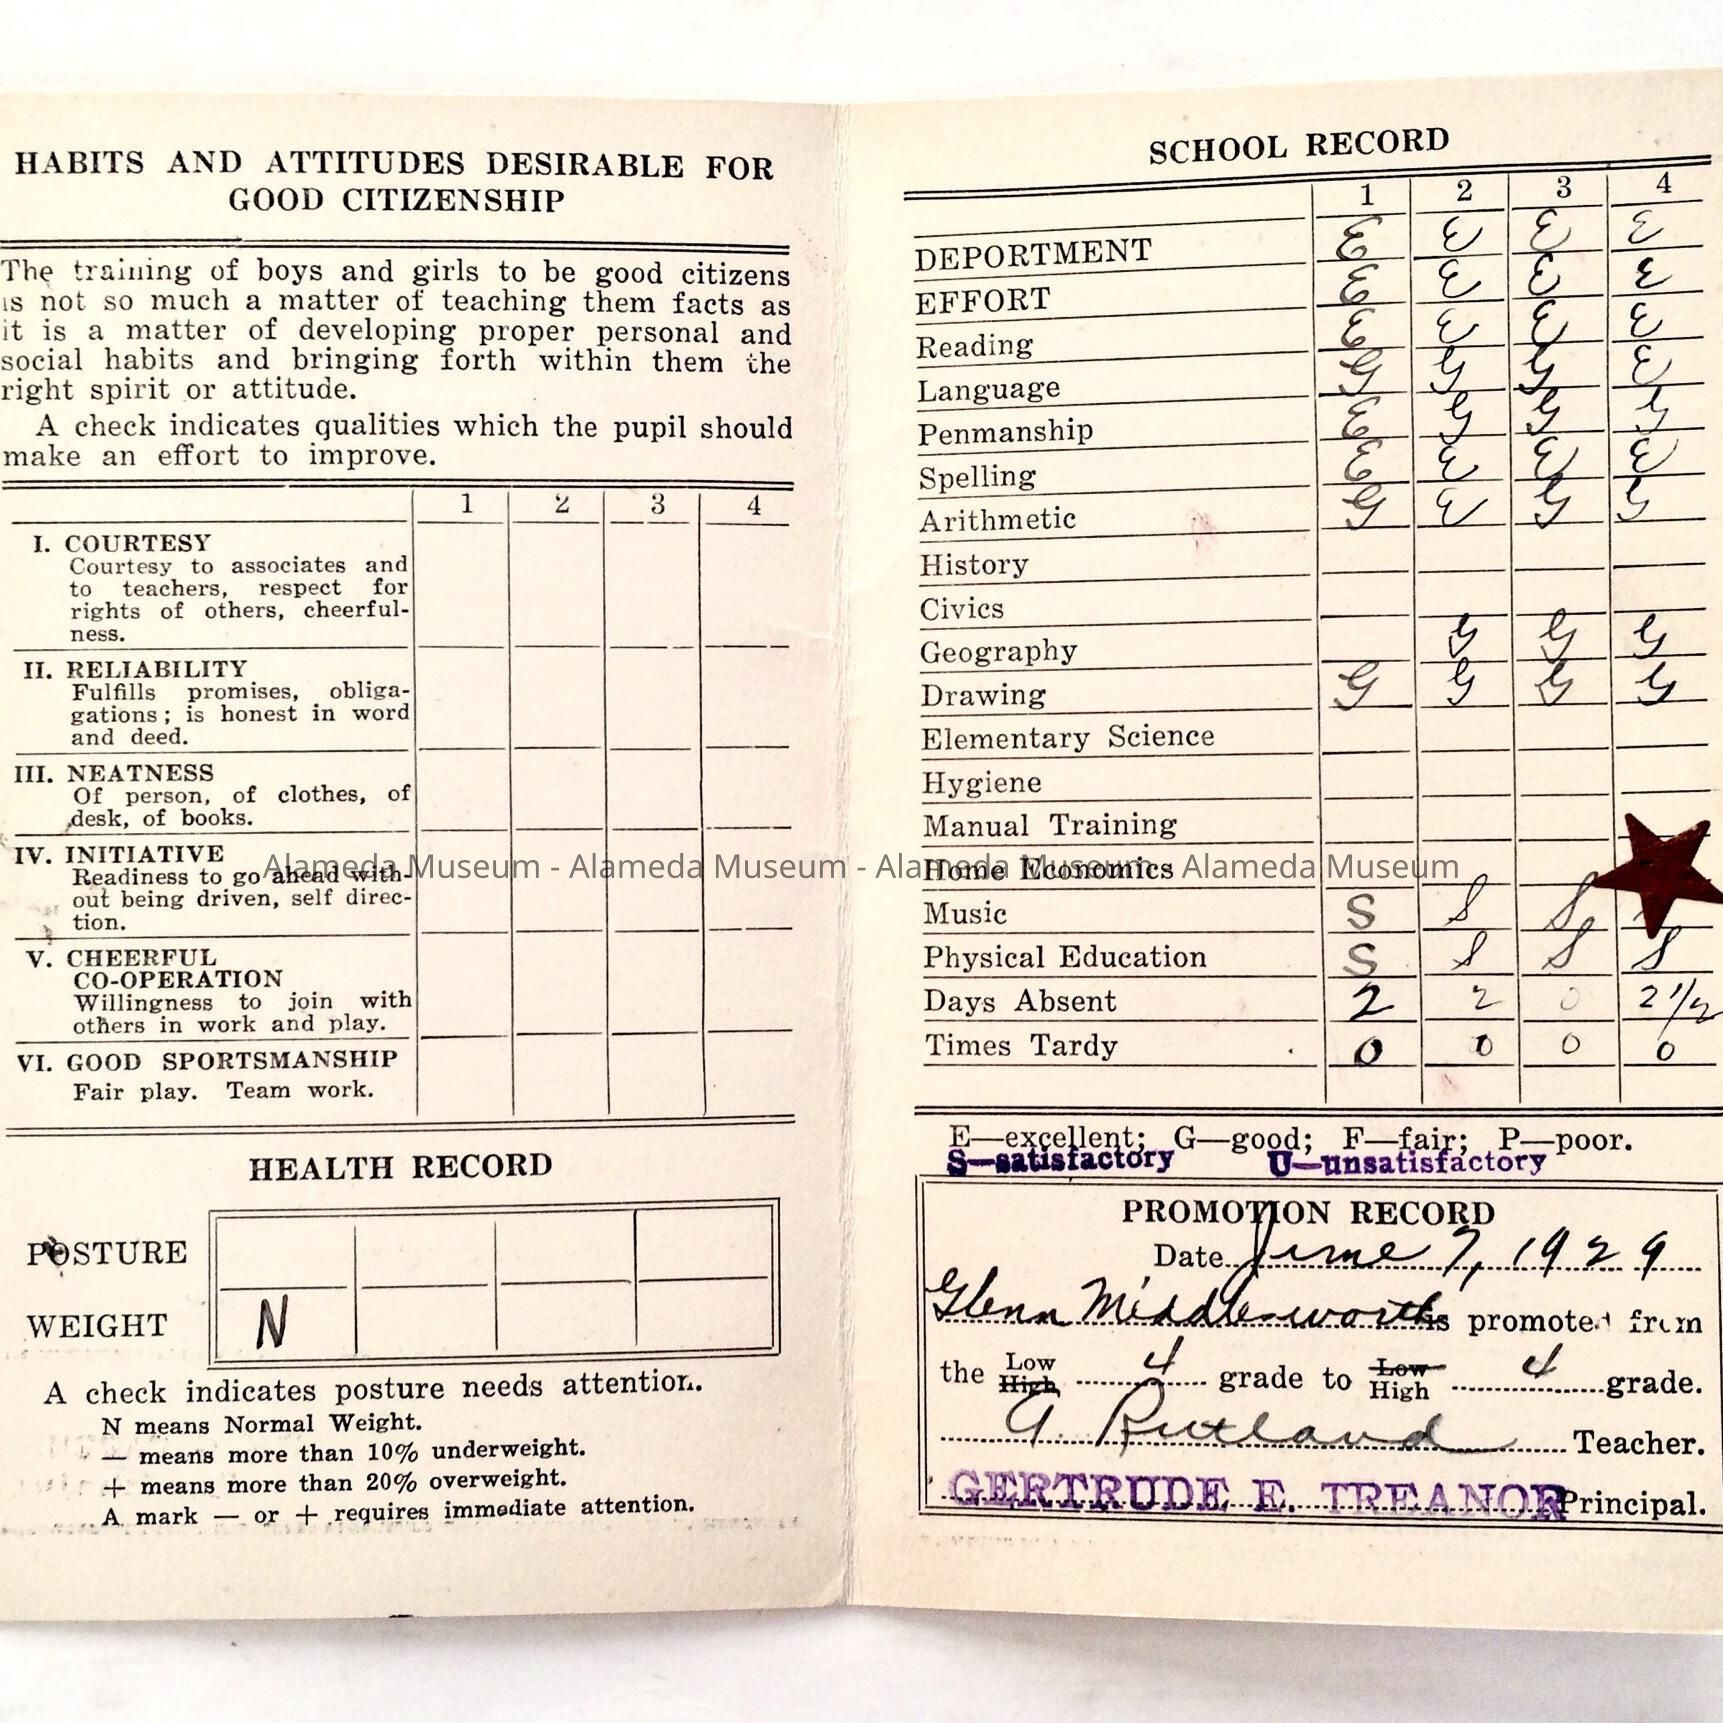 HABITS AND ATTITUDES DESIRABLE FOR
GOOD CITIZENSHIP
The training of boys and girls to be good citizens
is not so much a matter of teaching them facts as
it is a matter of developing proper personal and
social habits and bringing forth within them the
right spirit or attitude.
A check indicates qualities which the pupil should
make an effort to improve.
1 2 3 4
I. COURTESY
Courtesy to associates and
to teachers, respect for
rights of others, cheerful-
ness.
II. RELIABILITY
Fulfills promises, obliga-
gations; is honest in word
and deed.
III. NEATNESS
Of person, of clothes, of
desk, of books.
IV. INITIATIVE
Readiness to go ahead with-
out being driven, self direc-
tion.
V. CHEERFUL
CO-OPERATION
Willingness to join with
others in work and play.
VI. GOOD SPORTSMANSHIP
Fair play. Team work.
HEALTH RECORD
POSTURE
WEIGHT N
A check indicates posture needs attention.
N means Normal Weight.
— means more than 10% underweight.
+ means more than 20% overweight.
A mark — or + requires immediate attention.
SCHOOL RECORD
1 2 3 4
DEPORTMENT E E E E
EFFORT E E E E
Reading E E E E
Language G G G E
Penmanship E G G G
Spelling E E E E
Arithmetic G E G G
History
Civics
Geography G G G
Drawing G G G G
Elementary Science
Hygiene
Manual Training
Home Economics
Music S S S
Physical Education S S S S
Days Absent 2 2 0 2 1/2
Times Tardy 0 0 0 0
E—excellent; G—good; F—fair; P—poor.
S—satisfactory U—unsatisfactory
PROMOTION RECORD
Date June 7, 1929
Glenn Middlesworth is promoted from
the Low High 4 grade to Low High 4 grade.
G. Rutland Teacher.
GERTRUDE E. TREANOR Principal.
Alameda Museum - Alameda Museum - Alameda Museum - Alameda Museum